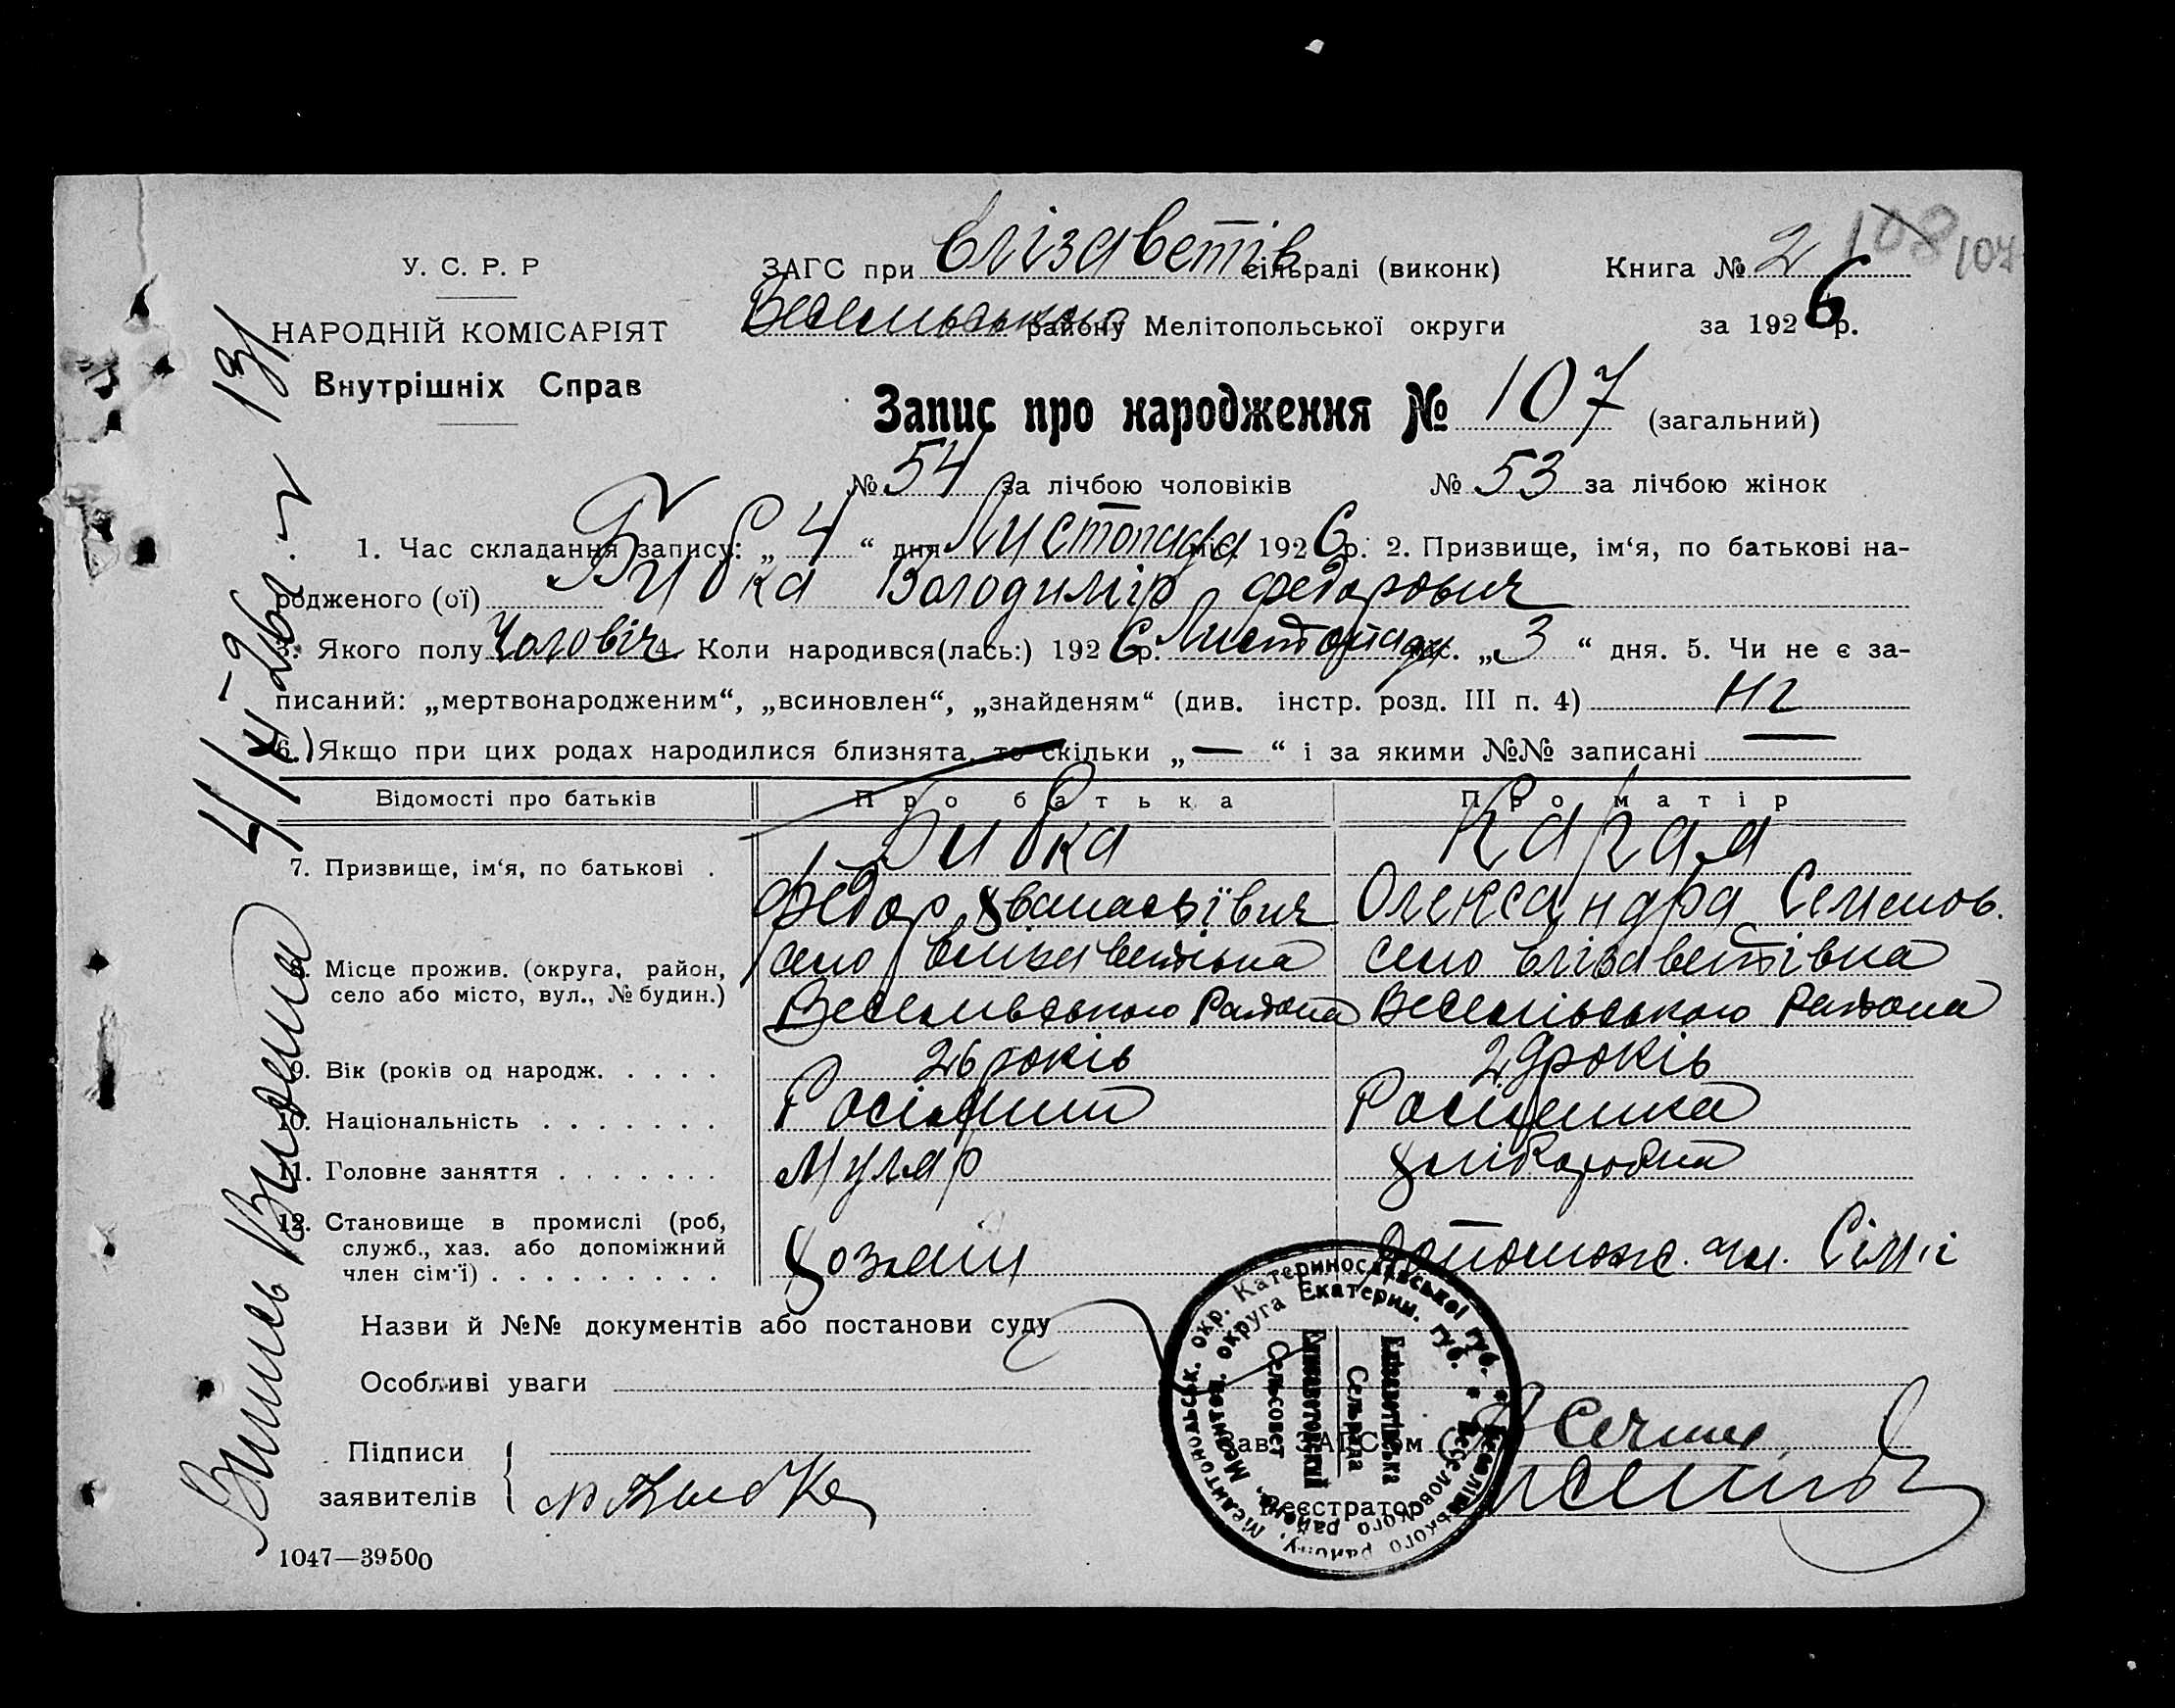 У. С. Р. Р
НАРОДНІЙ КОМІСАРІЯТ
Внутрішніх Справ
ЗАГС при Єлізаветів сільраді (виконк)
Книга № 2
108 107
району Мелітопольської округи
за 1926 р.
Запис про народження № 107 (загальний)
№ 54 за лічбою чоловіків № 53 за лічбою жінок
1. Час складання запису: „ 4 “ дня Листопада міс. 1926 р. 2. Призвище, ім‘я, по батькові на-
родженого (ої) Бибка Володимір Федорович
3. Якого полу Чоловіч 4. Коли народився(лась:) 1926 р. Листопада міс. „ 3 “ дня. 5. Чи не є за-
писаний: „мертвонародженим“, „всиновлен“, „знайденям“ (див. інстр. розд. III п. 4)
6. Якщо при цих родах народилися близнята, то скільки „ — “ і за якими №№ записані —
Відомості про батьків Про батька Про матір
7. Призвище, ім‘я, по батькові . Бибка
Федор Олександра Семенов.
8. Місце прожив. (округа, район, село або місто, вул., № будин.) село Єлізаветівка село Єлізаветівка
Веселівського Района Веселівського Района
9. Вік (років од народж. . . . . 26 років 29 років
10. Національність . . . . . . . Росіянин
11. Головне заняття . . . . . . . Муляр
12. Становище в промислі (роб, служб., хаз. або допоміжний член сім‘ї) . . . . . . . . . Хозяин Допоможс. чл. Сімії
Назви й №№ документів або постанови суду
Особливі уваги
Підписи
заявителів
Зав. ЗАГСом
Реєстратор
1047—39500
Випись Видана
131
Мелітопольськ. окр. Катеринославської губ. * Веселівського району,
округа Екатерин. губ. * Веселовского района, Мелитоп.
Єлізаветівська
Сельрада
Елизаветовский
Сельсовет